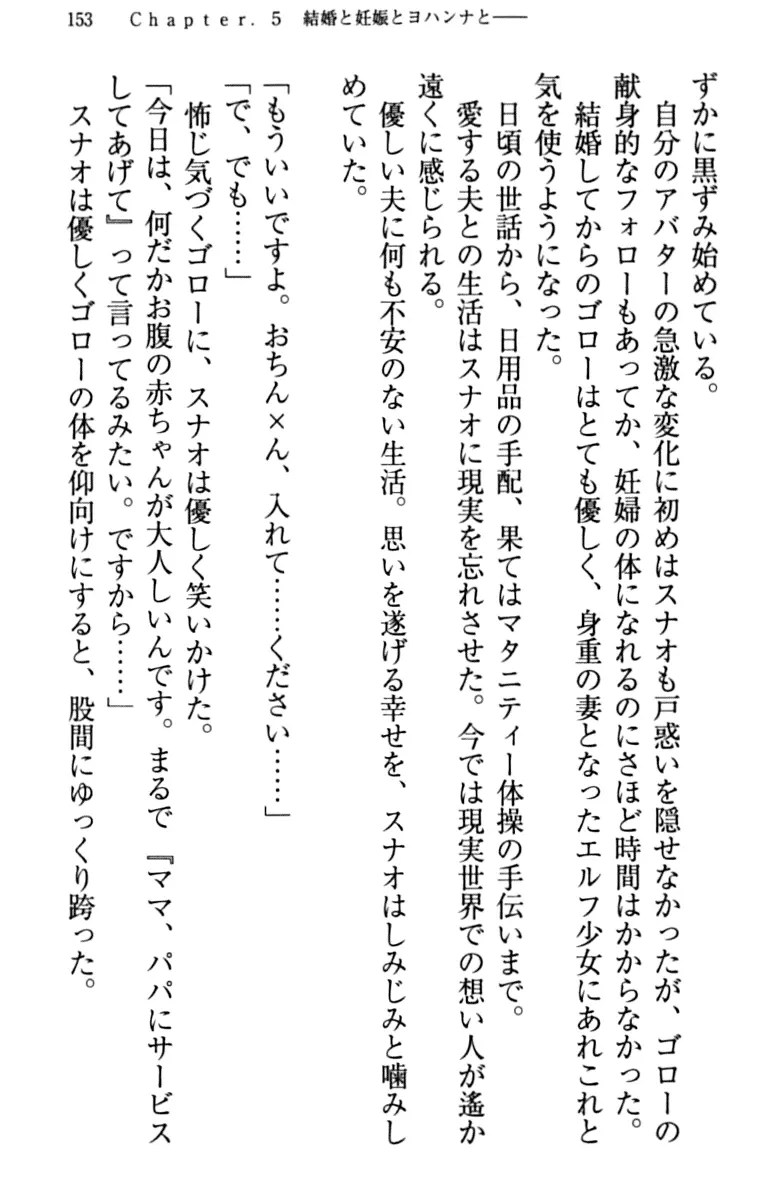 153　Chapter. 5　結婚と妊娠とヨハンナと――
ずかに黒ずみ始めている。
　自分のアバターの急激な変化に初めはスナオも戸惑いを隠せなかったが、ゴローの
献身的なフォローもあってか、妊婦の体になれるのにさほど時間はかからなかった。
　結婚してからのゴローはとても優しく、身重の妻となったエルフ少女にあれこれと
気を使うようになった。
　日頃の世話から、日用品の手配、果てはマタニティー体操の手伝いまで。
　愛する夫との生活はスナオに現実を忘れさせた。今では現実世界での想い人が遙か
遠くに感じられる。
　優しい夫に何も不安のない生活。思いを遂げる幸せを、スナオはしみじみと噛みし
めていた。
「もういいですよ。おちん×ん、入れて……ください……」
「で、でも……」
　怖じ気づくゴローに、スナオは優しく笑いかけた。
「今日は、何だかお腹の赤ちゃんが大人しいんです。まるで『ママ、パパにサービス
してあげて』って言ってるみたい。ですから……」
　スナオは優しくゴローの体を仰向けにすると、股間にゆっくり跨った。